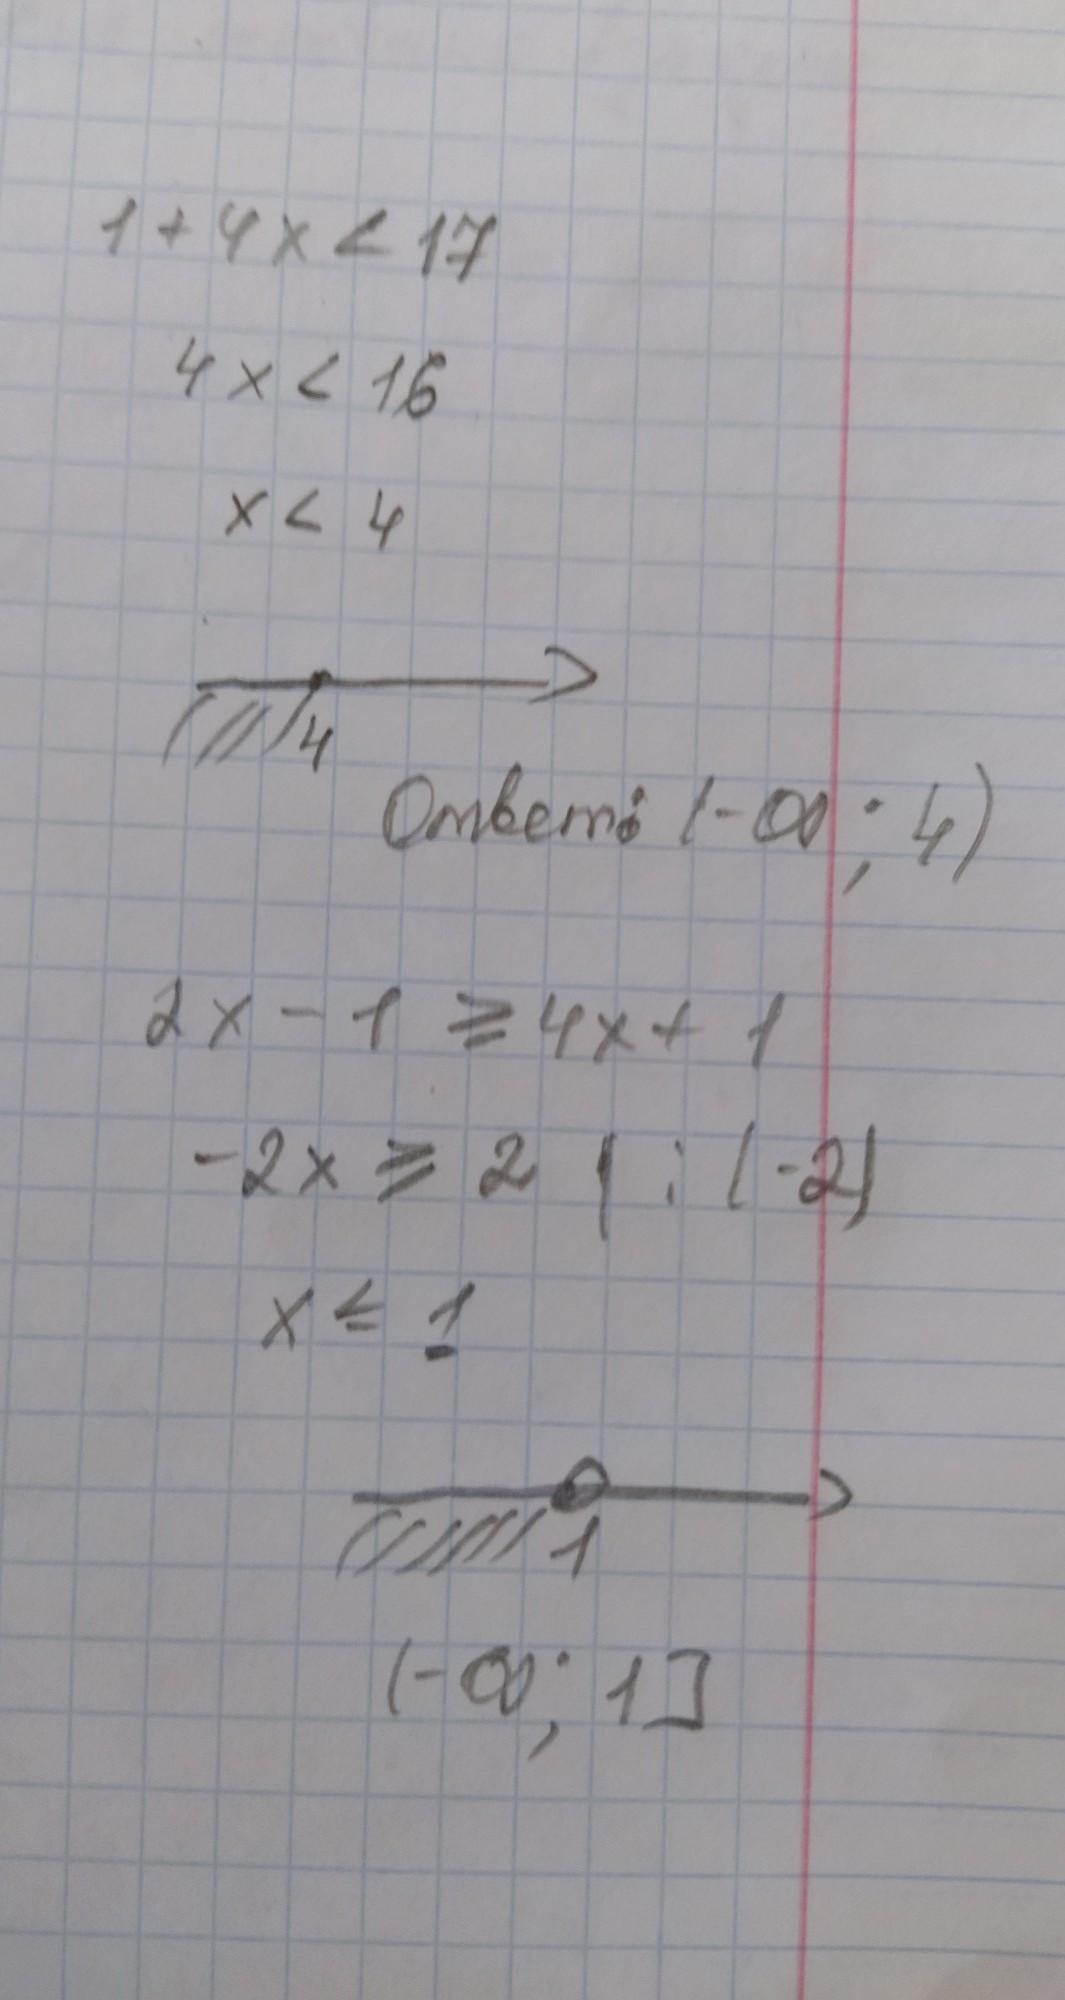 1 + 4x < 17
4x < 16
x < 4
4
Ответ: (-∞; 4)
2x - 1 ⩾ 4x + 1
-2x ⩾ 2 | : (-2)
x ≤ 1
1
(-∞; 1]